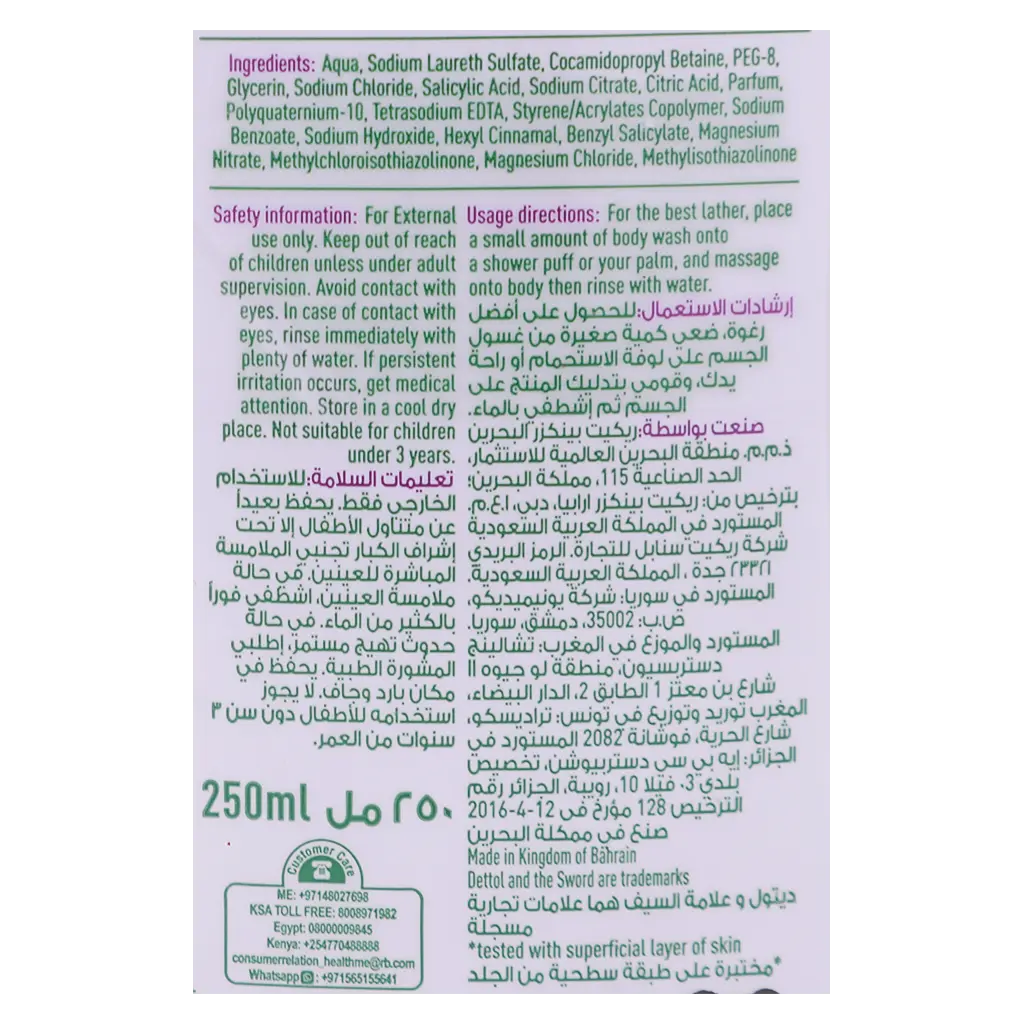 Ingredients: Aqua, Sodium Laureth Sulfate, Cocamidopropyl Betaine, PEG-8,
Glycerin, Sodium Chloride, Salicylic Acid, Sodium Citrate, Citric Acid, Parfum,
Polyquaternium-10, Tetrasodium EDTA, Styrene/Acrylates Copolymer, Sodium
Benzoate, Sodium Hydroxide, Hexyl Cinnamal, Benzyl Salicylate, Magnesium
Nitrate, Methylchloroisothiazolinone, Magnesium Chloride, Methylisothiazolinone
Safety information: For External
use only. Keep out of reach
of children unless under adult
supervision. Avoid contact with
eyes. In case of contact with
eyes, rinse immediately with
plenty of water. If persistent
irritation occurs, get medical
attention. Store in a cool dry
place. Not suitable for children
under 3 years.
تعليمات السلامة: للاستخدام
الخارجي فقط. يحفظ بعيداً
عن متناول الأطفال إلا تحت
إشراف الكبار تجنبي الملامسة
المباشرة للعينين. في حالة
ملامسة العينين، اشطفي فوراً
بالكثير من الماء. في حالة
حدوث تهيج مستمر، إطلبي
المشورة الطبية. يحفظ في
مكان بارد وجاف. لا يجوز
استخدامه للأطفال دون سن ٣
سنوات من العمر.
Usage directions: For the best lather, place
a small amount of body wash onto
a shower puff or your palm, and massage
onto body then rinse with water.
إرشادات الاستعمال: للحصول على أفضل
رغوة، ضعي كمية صغيرة من غسول
الجسم على لوفة الاستحمام أو راحة
يدك، وقومي بتدليك المنتج على
الجسم ثم إشطفي بالماء.
صنعت بواسطة: ريكيت بينكزر البحرين
ذ.م.م. منطقة البحرين العالمية للاستثمار،
الحد الصناعية 115، مملكة البحرين؛
بترخيص من: ريكيت بينكزر ارابيا، دبي، ا.ع.م.
المستورد في المملكة العربية السعودية
شركة ريكيت سنابل للتجارة. الرمز البريدي
٢٣٣٢١ جدة ، المملكة العربية السعودية.
المستورد في سوريا: شركة يونيميديكو،
ص.ب: 35002، دمشق، سوريا.
المستورد والموزع في المغرب: تشالينج
دستربسيون، منطقة لو جيوه II
شارع بن معتز 1 الطابق 2، الدار البيضاء،
المغرب توريد وتوزيع في تونس: تراديسكو،
شارع الحرية، فوشانة 2082 المستورد في
الجزائر: إيه بي سي دستربيوشن، تخصيص
بلدي 3، فيلا 10، رويبة، الجزائر رقم
الترخيص 128 مؤرخ في 12-4-2016
صنع في ممكلة البحرين
Made in Kingdom of Bahrain
Dettol and the Sword are trademarks
ديتول و علامة السيف هما علامات تجارية
مسجلة
*tested with superficial layer of skin
*مختبرة على طبقة سطحية من الجلد
250ml ٢٥٠ مل
Customer Care
ME: +97148027698
KSA TOLL FREE: 8008971982
Egypt: 08000009845
Kenya: +254770488888
consumerrelation_healthme@rb.com
Whatsapp : +971565155641